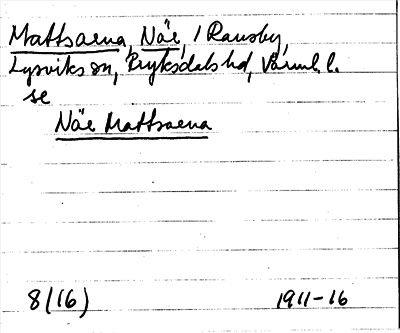 Mattsaena, Näe, i Ransby,
Lysviks sn, Fryksdals hd, Värml. l.
se
Näe Mattsaena
8(16) 1911-16